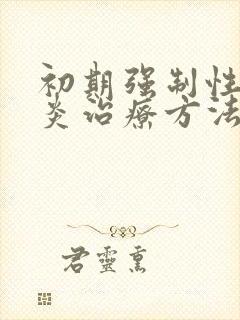 初期强制性
炎治療方法
君靈熏